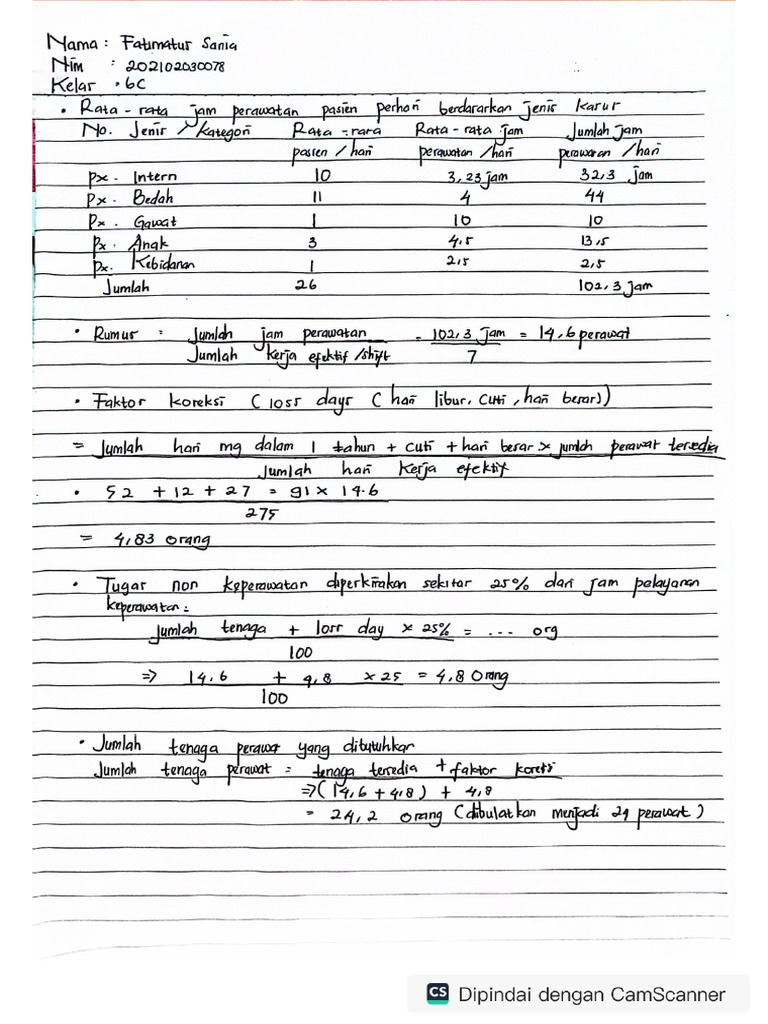 Nama : Fatimatur Sania
Nim : 202102030078
Kelas : 6C
• Rata - rata jam perawatan pasien perhari berdasarkan jenis kasus
No. Jenis / Kategori Rata - rata Rata - rata jam Jumlah jam
pasien / hari perawatan /hari perawatan /hari
Px. Intern 10 3,23 jam 32,3 jam
Px. Bedah 11 4 44
Px. Gawat 1 10 10
Px. Anak 3 4,5 13,5
Px. Kebidanan 1 2,5 2,5
Jumlah 26 102,3 jam
• Rumus : Jumlah jam perawatan = 102,3 jam = 14,6 perawat
Jumlah kerja efektif /shift 7
• Faktor koreksi ( loss days ( hari libur, cuti, hari besar))
= Jumlah hari mg dalam 1 tahun + cuti + hari besar x jumlah perawat tersedia
Jumlah hari kerja efektif
• 52 + 12 + 27 = 91 x 14.6
275
= 4,83 orang
• Tugas non keperawatan diperkirakan sekitar 25% dari jam pelayanan
keperawatan :
Jumlah tenaga + loss day x 25% = ... org
100
=> 14,6 + 4,8 x 25 = 4,8 Orang
100
• Jumlah tenaga perawat yang dibutuhkan
Jumlah tenaga perawat = tenaga tersedia + faktor koreksi
=> (14,6 + 4,8) + 4,8
= 24,2 orang (dibulatkan menjadi 24 perawat)
CS Dipindai dengan CamScanner